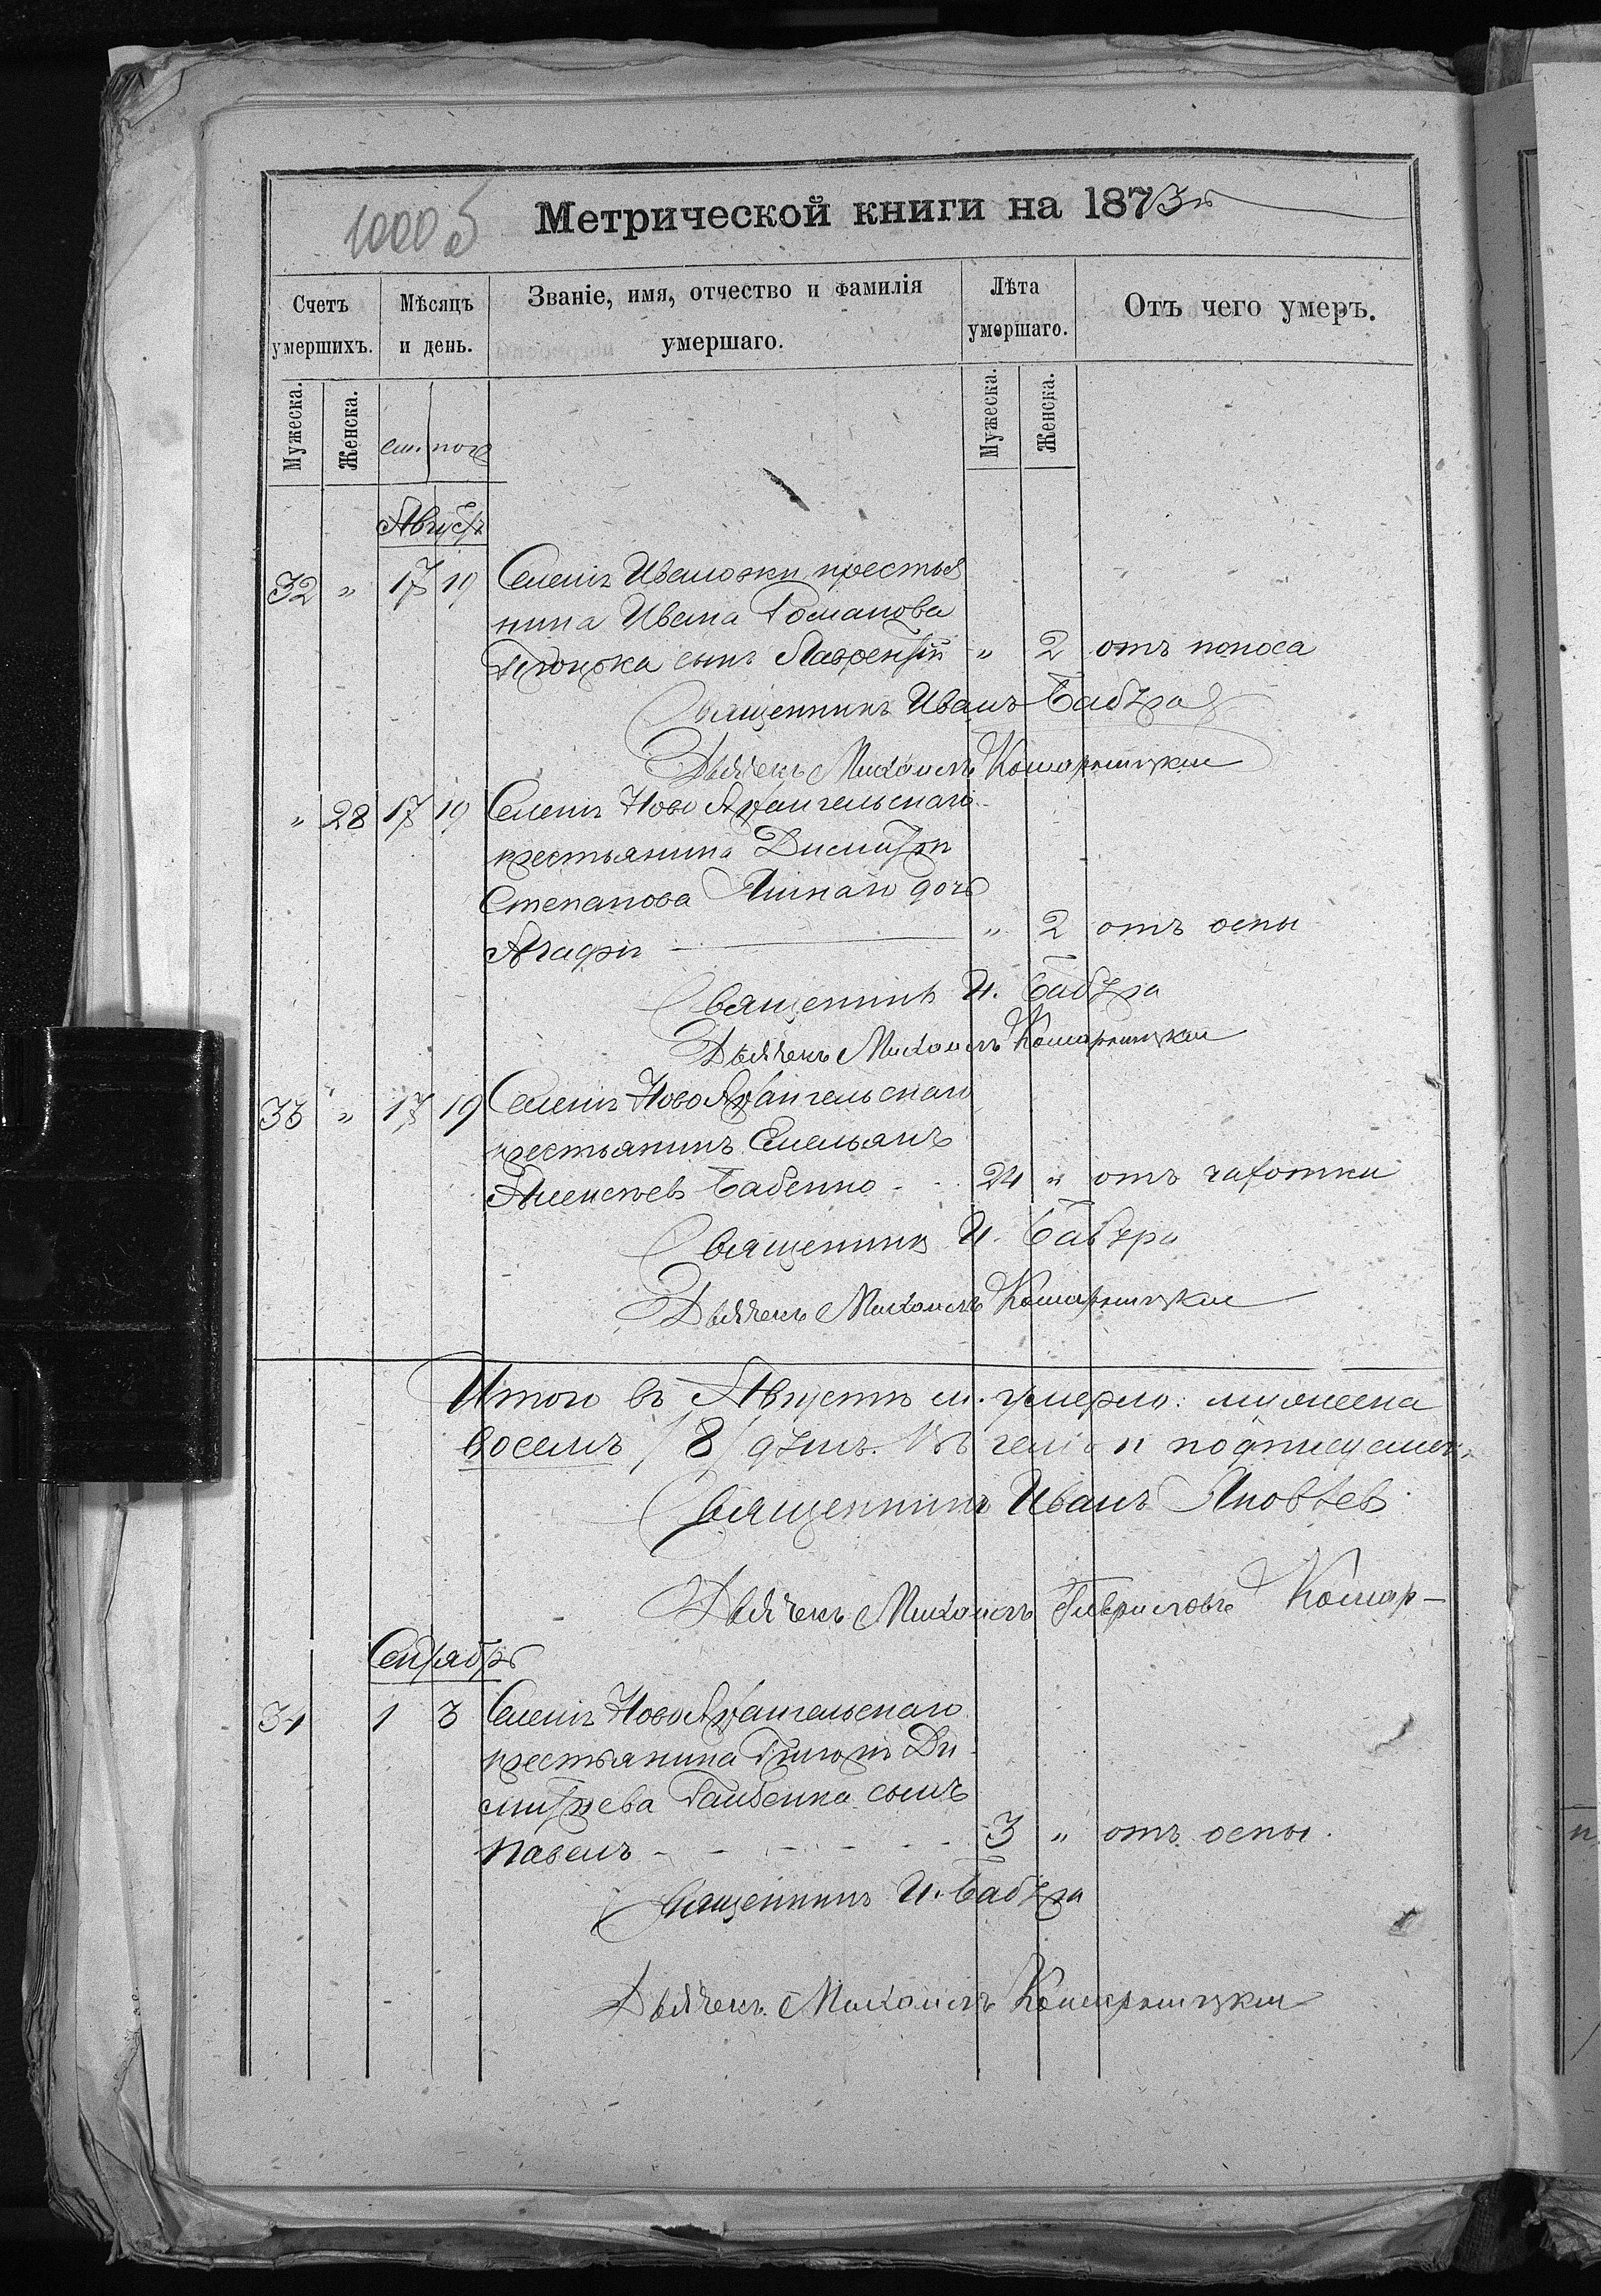 1000 б
Метрической книги на 1873 г
Счетъ умершихъ.
Мѣсяцъ и день.
Званіе, имя, отчество и фамилія умершаго.
Лѣта умершаго.
Отъ чего умеръ.
Мужеска. Женска. см. погр Мужеска. Женска.
Августъ
32 " 17 19 Селенія Ивановки крестья
нина Ивана Романова
сынъ Лаврентій " 2 отъ поноса
Священникъ Иванъ
Дьячекъ Михаилъ
" 28 17 19 Селенія Ново Архангельскаго
крестьянина Димитрія
Степанова дочь
Агафія " 2 отъ оспы
Священникъ И.
Дьячекъ Михаилъ
33 " 17 19 Селенія Ново Архангельскаго
крестьянинъ Емельянъ
Алексѣевъ Бабенко 24 " отъ чахотки
Священникъ И.
Дьячекъ Михаилъ
Итого въ Августѣ м. умерло: мужеска
восемь /8/ душъ. Въ чемъ и подписуемся
Священникъ Иванъ Яковлев
Дьячекъ Михаилъ Гавриловъ Комар-
Сентябрь
34 1 3 Селенія Ново Архангельскаго
крестьянина Григорія Ди
митріева сынъ
Павелъ 3 " отъ оспы.
Священникъ И.
Дьячекъ Михаилъ